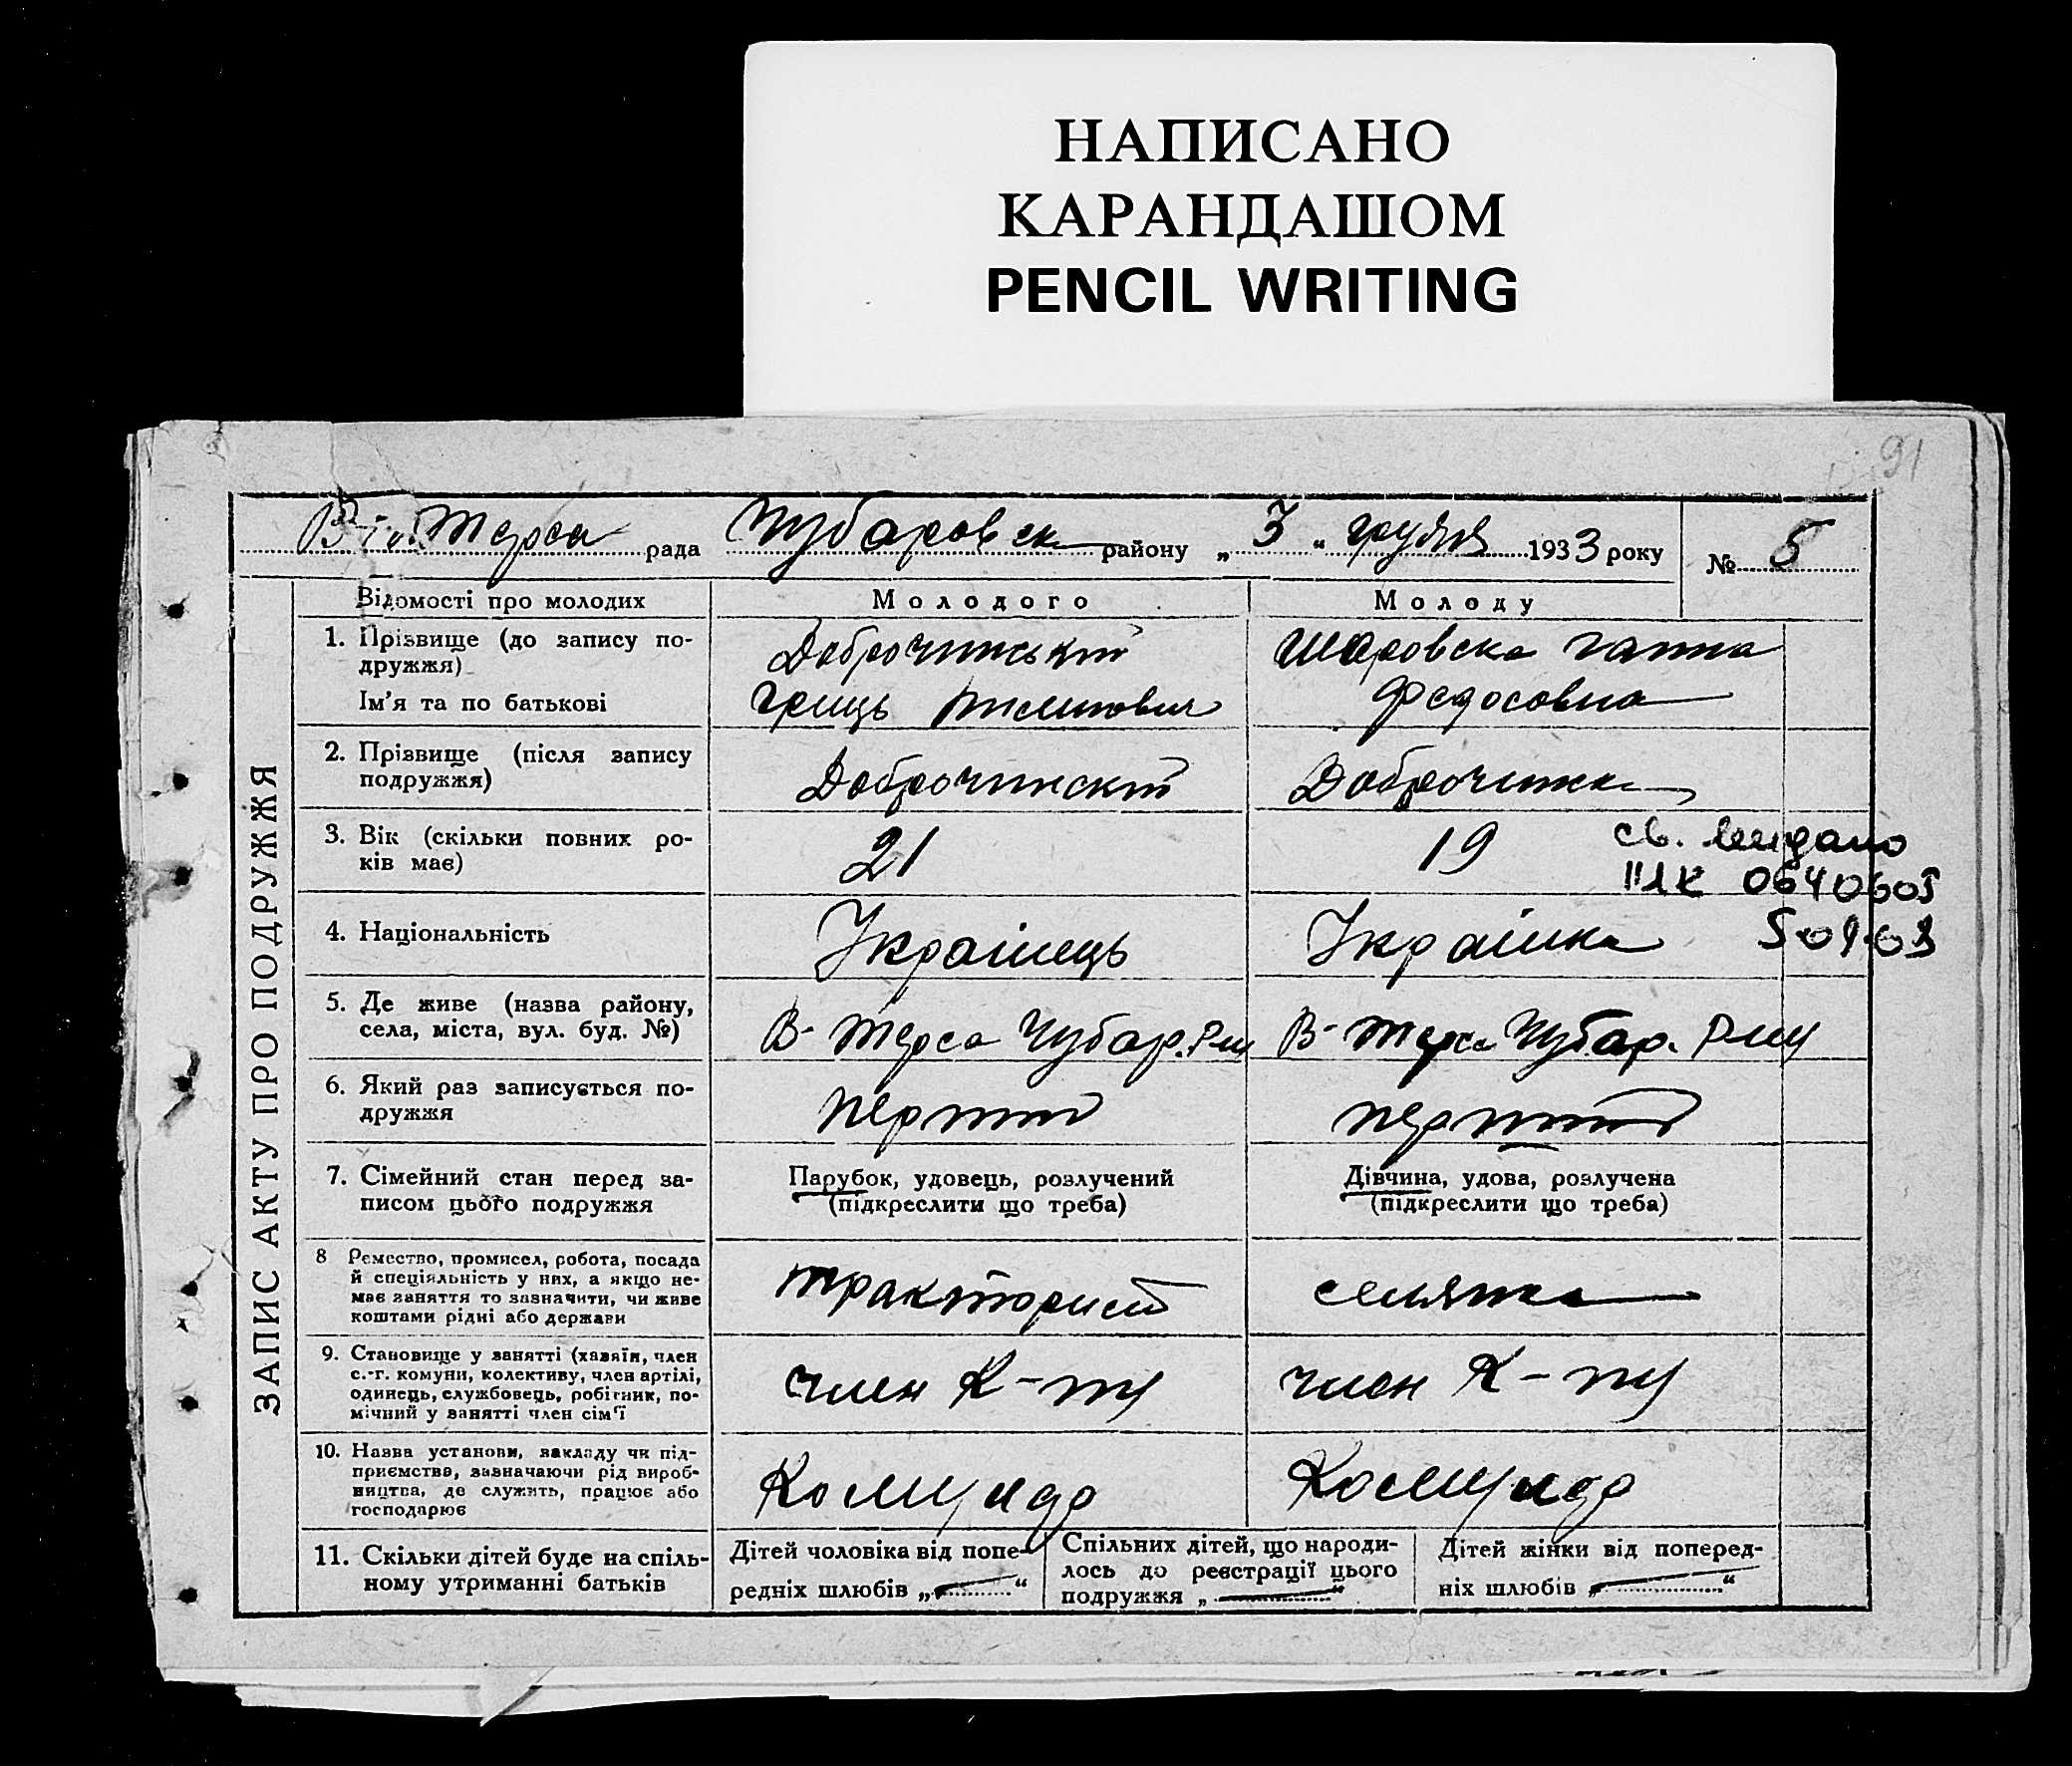 НАПИСАНО
КАРАНДАШОМ
PENCIL WRITING
91
Терса рада Чубаровск району „ 3 “ грудня 1933 року № 5
ЗАПИС АКТУ ПРО ПОДРУЖЖЯ
Відомості про молодих
Молодого
Молоду
1. Прізвище (до запису по-
дружжя)
Ім'я та по батькові
Доброчинський
Гриць
Шаровска Ганна
Федосовна
2. Прізвище (після запису
подружжя)
Доброчинский
Доброчинск
3. Вік (скільки повних ро-
ків має)
21
19
св. видано
064060
4. Національність
Українець
Українка
5. Де живе (назва району,
села, міста, вул. буд. №)
В-Терса Чубар. Р-ну
В-Терса Чубар. Р-ну
6. Який раз записується по-
дружжя
перший
перший
7. Сімейний стан перед за-
писом цього подружжя
Парубок, удовець, розлучений
(підкреслити що треба)
Дівчина, удова, розлучена
(підкреслити що треба)
8 Ремество, промисел, робота, посада
й спеціяльність у них, а якщо не-
має заняття то зазначити, чи живе
коштами рідні або держави
тракторист
селянка
9. Становище у занятті (хазяїн, член
с.-г. комуни, колективу, член артілі,
одинець, службовець, робітник, по-
мічний у занятті член сім'ї
член К-пу
член К-пу
10. Назва установи, закладу чи під-
приємства, зазначаючи рід вироб-
ництва, де служить, працює або
господарює
11. Скільки дітей буде на спіль-
ному утриманні батьків
Дітей чоловіка від попе-
редніх шлюбів „ “
Спільних дітей, що народи-
лось до реєстрації цього
подружжя „ “
Дітей жінки від поперед-
ніх шлюбів „ “